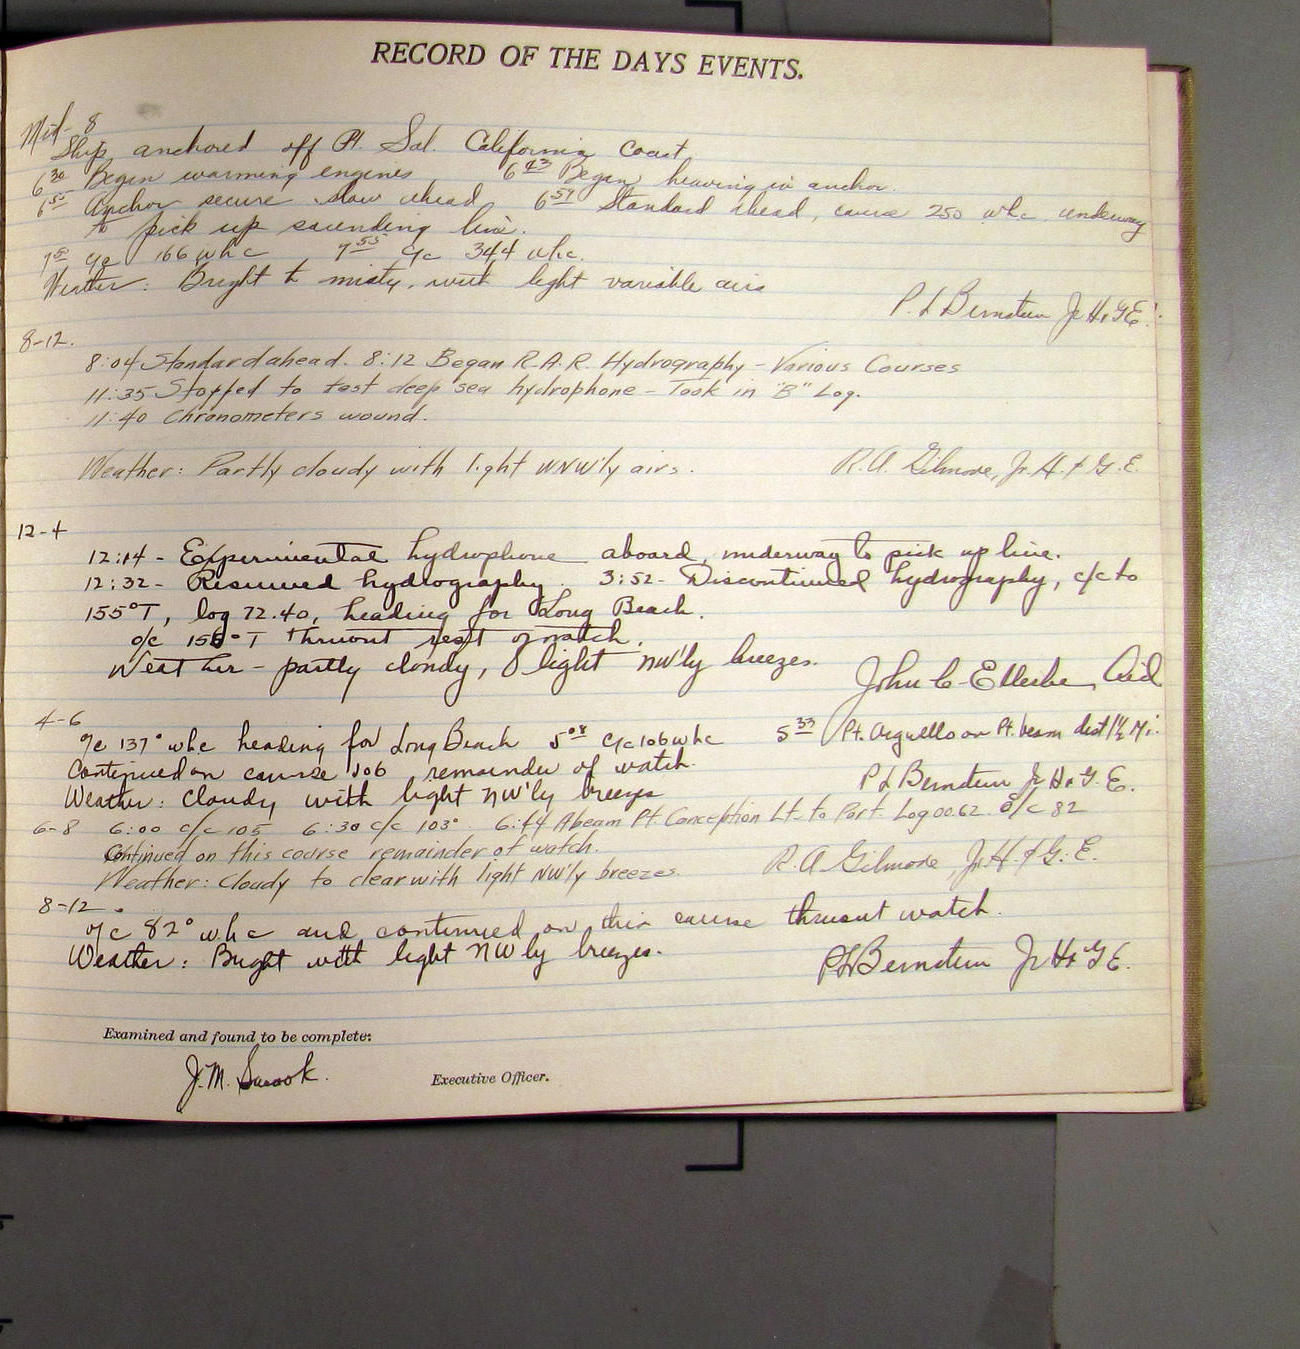 RECORD OF THE DAYS EVENTS.
Mid-8
Ship anchored off Pt. Sal. California Coast
6 30 Began warming engines 6 43 Began heaving in anchor.
6 55 Anchor secure slow ahead 6 57 Standard ahead, course 250 whc underway
to pick up sounding line.
c/c 166 whc 7 55 c/c 344 whc.
Weather: Bright to misty, with light variable airs
P. L. Bernstein Jr H & G E.
8-12.
8:04 Standard ahead. 8:12 Began R.A.R. Hydrography - Various Courses
11:35 Stopped to test deep sea hydrophone - Took in "B" Log.
11:40 Chronometers wound.
Weather: Partly cloudy with light WNW'ly airs.
R.A. Gilmore, Jr. H. & G. E.
12-4
12:14 - Experimental hydrophone aboard, underway to pick up line.
12:32 - Resumed hydrography. 3:52 - Discontinued hydrography, c/c to
155°T, log 72.40, heading for Long Beach.
o/c 155°T thruout rest of watch.
Weather - partly cloudy, light NW'ly breezes.
John C. Ellerbe, Aid
4-6
o/c 137° whc heading for Long Beach 5 08 c/c 106 whc 5 33 Pt. Arguello on Pt. beam dist 11½ Mi.
Continued on course 106 remainder of watch.
P L Bernstein Jr H & G. E.
Weather: Cloudy with light NW'ly breezes
6-8 6:00 c/c 105 6:30 c/c 103° 6:44 Abeam Pt. Conception Lt. to Port. Log 00.62. c/c 82
Continued on this course remainder of watch.
Weather: Cloudy to clear with light NW'ly breezes.
R.A. Gilmore, Jr. H. & G. E.
8-12.
o/c 82° whc and continued on this course thruout watch.
Weather: Bright with light NW'ly breezes.
P L Bernstein Jr H & G E.
Examined and found to be complete:
J. M. Smook.
Executive Officer.